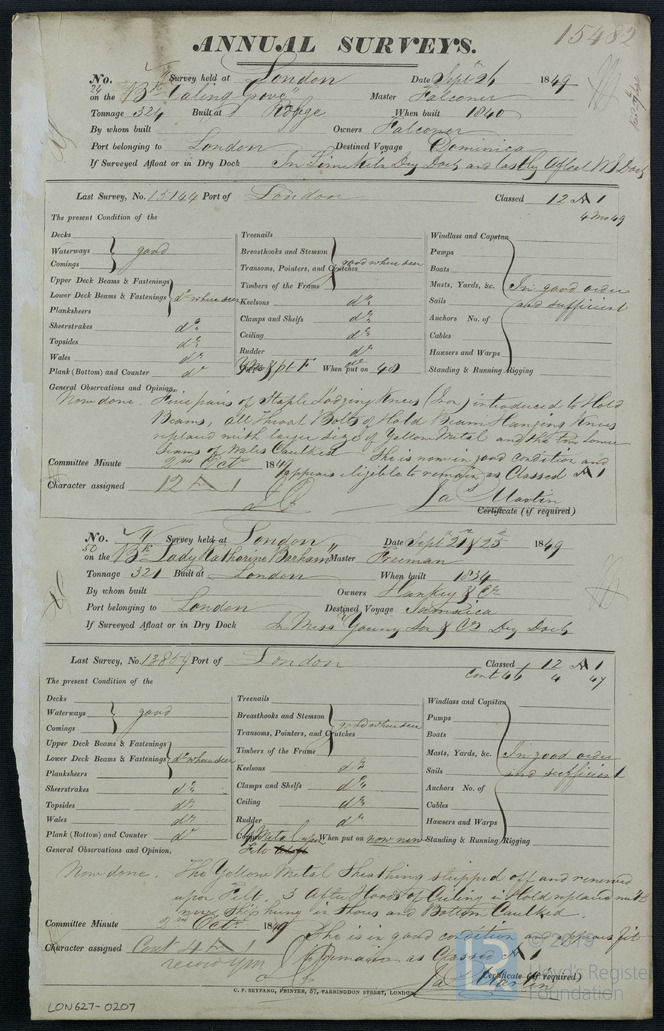 15482
ANNUAL SURVEYS.
No. Survey held at London Date Sept 24 1849
24 on the Bk "Ealing Grove" Master Falconer
Tonnage 324 Built at Rouge When built 1840
By whom built Owners Falconer
Port belonging to London Destined Voyage Dominica
If Surveyed Afloat or in Dry Dock In Limekiln Dry Dock and lastly afloat WI Dock
Last Survey, No. 15144 Port of London Classed 12 A 1
4 Mo 49
The present Condition of the
Decks
Waterways
Comings
good
Upper Deck Beams & Fastenings
Lower Deck Beams & Fastenings
Planksheers
do where seen
Sheerstrakes do
Topsides do
Wales do
Plank (Bottom) and Counter do
Treenails
Breasthooks and Stemson
Transoms, Pointers, and Crutches
Timbers of the Frame
good where seen
Keelsons do
Clamps and Shelfs do
Ceiling do
Rudder do
When put on 48
Windlass and Capstan
Pumps
Boats
Masts, Yards, &c.
Sails
Anchors No. of
Cables
Hawsers and Warps
Standing & Running Rigging
In good order
and sufficient
General Observations and Opinion,
Now done. Five pairs of Staple Lodging Knees (Iron) introduced to Hold
Beams, all Throat Bolts of Hold Beam Hanging Knees
replaced with larger size of Yellow Metal and the two lower
Seams of Wales Caulked. She is now in good condition and
appears eligible to remain as Classed A 1
Committee Minute 2nd Octr 1849
Character assigned 12 A 1
Jas Martin
Certificate (if required)
No. Survey held at London Date Septr 21 & 25 1849
50 on the Bk "Lady Katharine Barham" Master Freeman
Tonnage 321 Built at London When built 1834
By whom built Owners Hankey & Co
Port belonging to London Destined Voyage Jamaica
If Surveyed Afloat or in Dry Dock In Mess Young Son & Co Dry Dock
Last Survey, No. 13859 Port of London Classed 12 A 1
Cont 46 4 47
The present Condition of the
Decks
Waterways
Comings
good
Upper Deck Beams & Fastenings
Lower Deck Beams & Fastenings
Planksheers
do where seen
Sheerstrakes do
Topsides do
Wales do
Plank (Bottom) and Counter do
Treenails
Breasthooks and Stemson
Transoms, Pointers, and Crutches
Timbers of the Frame
good where seen
Keelsons do
Clamps and Shelfs do
Ceiling do
Rudder do
Y Metal upon When put on now new
Felt
Windlass and Capstan
Pumps
Boats
Masts, Yards, &c.
Sails
Anchors No. of
Cables
Hawsers and Warps
Standing & Running Rigging
In good order
and sufficient
General Observations and Opinion,
Now done. The Yellow Metal Sheathing stripped off and renewed
upon Felt. 3 After Hoods of Ceiling in Hold replaced with
new. She hung in Shores and Bottom Caulked.
She is in good condition and appears fit
to remain as Classed A 1
Committee Minute 2nd Octr 1849
Character assigned Cont 4 A 1
Jas Martin
Certificate (if required)
C. F. SEYFANG, PRINTER, 57, FARRINGDON STREET, LONDON
LON627-0207
© 2019
Lloyd's Register
Foundation